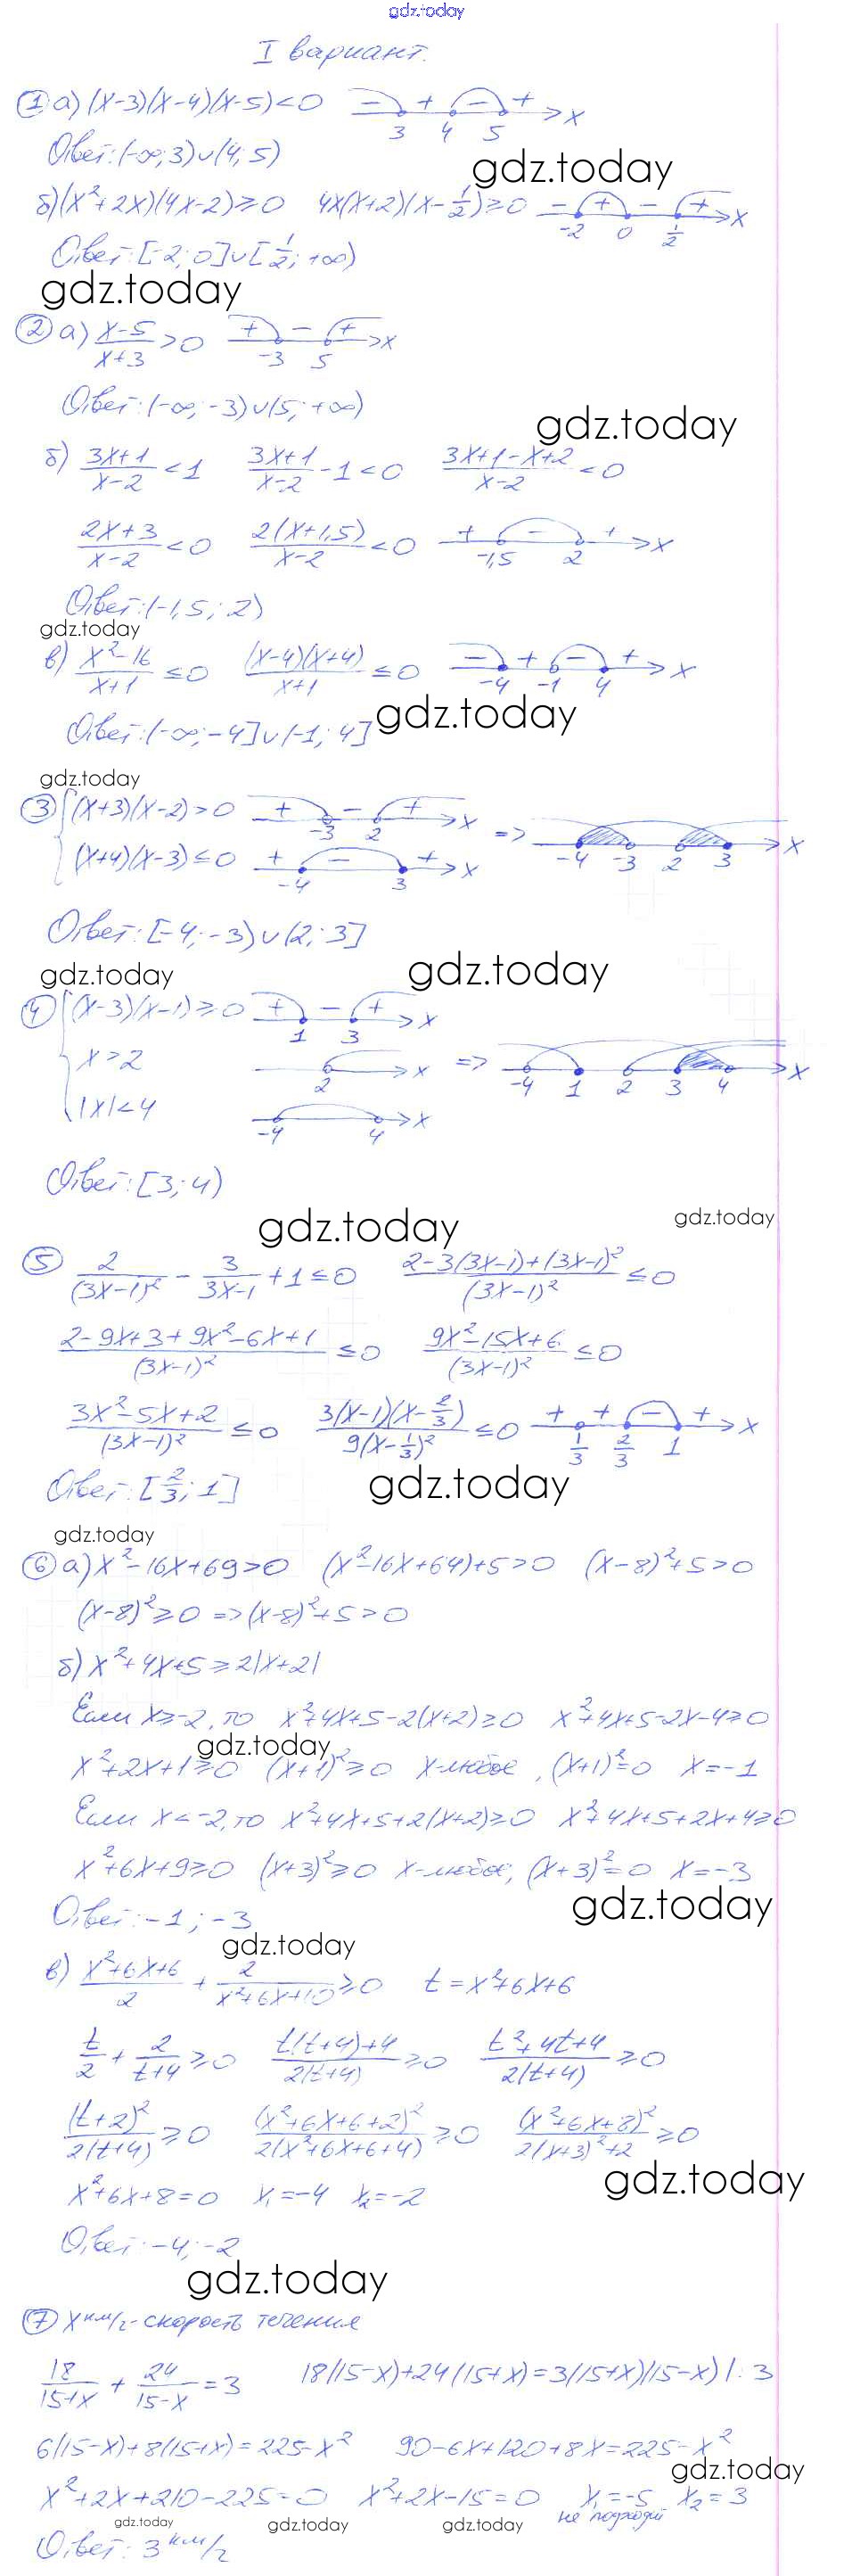 gdz.today
I вариант.
① а) (x-3)(x-4)(x-5)<0 - + - + x
3 4 5
Ответ: (-∞; 3)∪(4; 5)
gdz.today
б) (x²+2x)(4x-2)≥0 4x(x+2)(x-1/2)≥0 - + - + x
-2 0 1/2
Ответ: [-2; 0]∪[1/2; +∞)
gdz.today
② а) (x-5)/(x+3)>0 + - + x
-3 5
Ответ: (-∞; -3)∪(5; +∞)
gdz.today
б) (3x+1)/(x-2)<1 (3x+1)/(x-2)-1<0 (3x+1-x+2)/(x-2)<0
(2x+3)/(x-2)<0 2(x+1,5)/(x-2)<0 + - + x
-1,5 2
Ответ: (-1,5; 2)
gdz.today
в) (x²-16)/(x+1)≤0 (x-4)(x+4)/(x+1)≤0 - + - + x
-4 -1 4
Ответ: (-∞; -4]∪(-1; 4]
gdz.today
gdz.today
③ { (x+3)(x-2)>0 + - + x
-3 2
(x+4)(x-3)≤0 + - + x => x
-4 3 -4 -3 2 3
Ответ: [-4; -3)∪(2; 3]
gdz.today gdz.today
④ { (x-3)(x-1)≥0 + - + x
1 3
x>2 x => x
2 -4 1 2 3 4
|x|<4 x
-4 4
Ответ: [3; 4)
gdz.today gdz.today
⑤ 2/(3x-1)² - 3/(3x-1) + 1≤0 (2-3(3x-1)+(3x-1)²)/(3x-1)² ≤0
(2-9x+3+9x²-6x+1)/(3x-1)² ≤0 (9x²-15x+6)/(3x-1)² ≤0
(3x²-5x+2)/(3x-1)² ≤0 3(x-1)(x-2/3)/9(x-1/3)² ≤0 + + - + x
1/3 2/3 1
Ответ: [2/3; 1]
gdz.today
gdz.today
⑥ а) x²-16x+69>0 (x²-16x+64)+5>0 (x-8)²+5>0
(x-8)²≥0 => (x-8)²+5>0
б) x²+4x+5≥2|x+2|
Если x≥-2, то x²+4x+5-2(x+2)≥0 x²+4x+5-2x-4≥0
gdz.today
x²+2x+1≥0 (x+1)²≥0 x-любое, (x+1)²=0 x=-1
Если x<-2, то x²+4x+5+2(x+2)≥0 x²+4x+5+2x+4≥0
x²+6x+9≥0 (x+3)²≥0 x-любое, (x+3)²=0 x=-3
gdz.today
Ответ: -1; -3
gdz.today
в) (x²+6x+6)/2 + 2/(x²+6x+10) ≥0 t=x²+6x+6
t/2 + 2/(t+4) ≥0 (t(t+4)+4)/2(t+4) ≥0 (t²+4t+4)/2(t+4) ≥0
(t+2)²/2(t+4) ≥0 (x²+6x+6+2)²/2(x²+6x+6+4) ≥0 (x²+6x+8)²/2(x+3)²+2 ≥0
gdz.today
x²+6x+8=0 x₁=-4 x₂=-2
Ответ: -4; -2
gdz.today
⑦ x км/ч - скорость течения
18/(15+x) + 24/(15-x) = 3 18(15-x)+24(15+x)=3(15+x)(15-x) |:3
6(15-x)+8(15+x)=225-x² 90-6x+120+8x=225-x²
gdz.today
x²+2x+210-225=0 x²+2x-15=0 x₁=-5 x₂=3
не подходит
gdz.today gdz.today gdz.today
Ответ: 3 км/ч